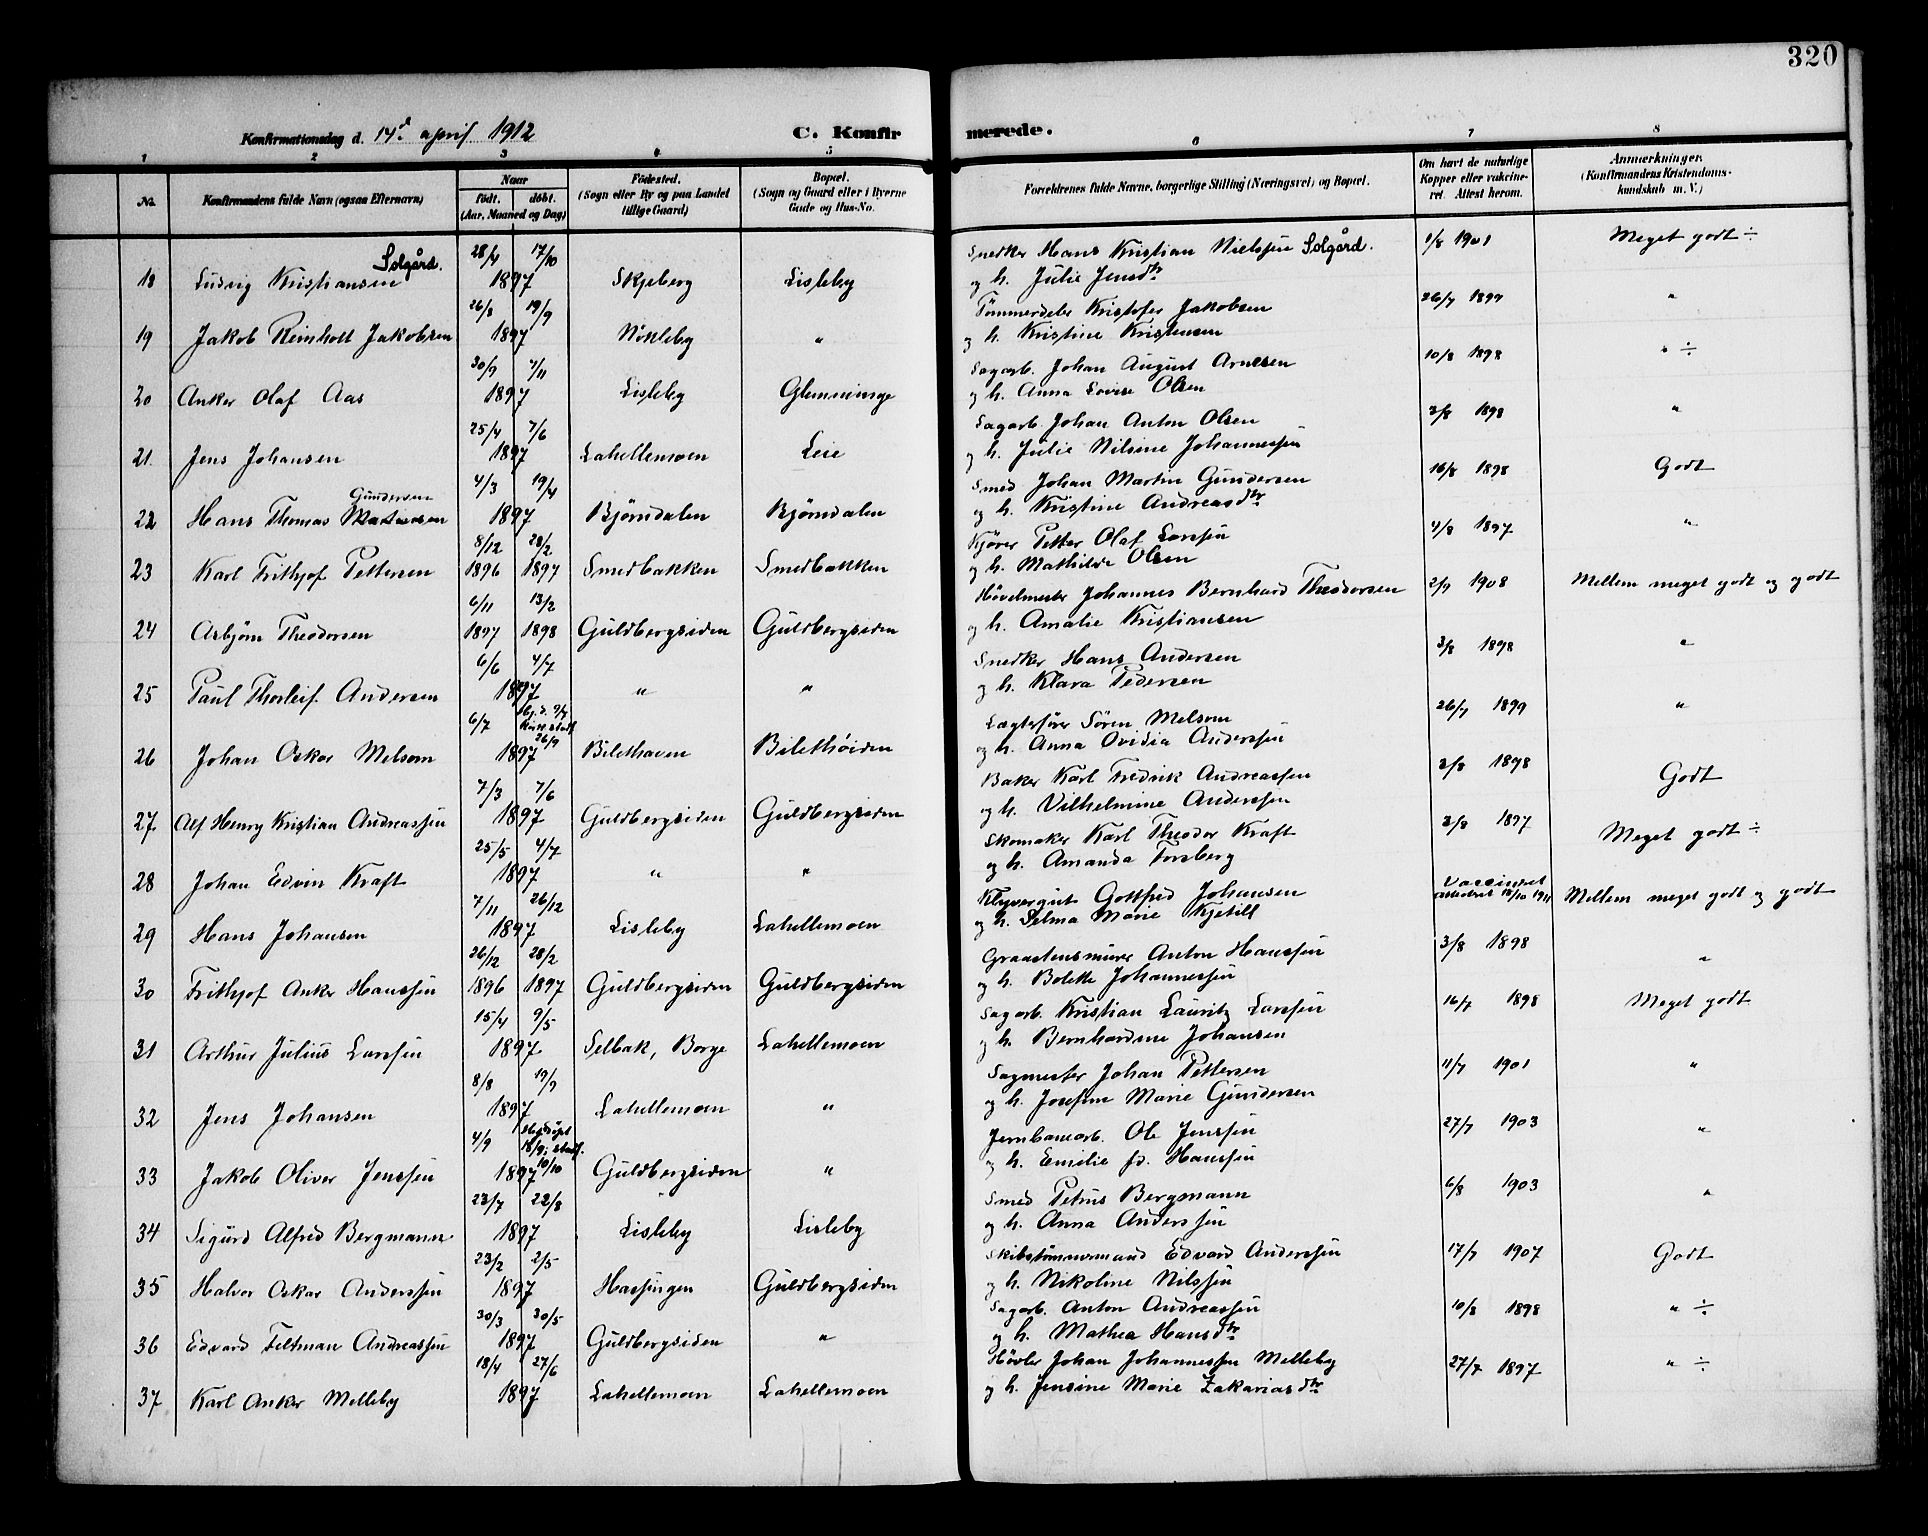 320
Konfirmationsdag d. 14d april 1912 C. Konfirmerede.
1 2 3 4 5 6 7 8
No. Konfirmandens fulde Navn (ogsaa Efternavn) Naar født. døbt. (Aar, Maaned og Dag) Fødested. (Sogn eller By og paa Landet tillige Gaard) Bopæl. (Sogn og Gaard eller i Byerne Gade og Hus-No. Forældrenes fulde Navne, borgerlige Stilling (Næringsvei) og Bopæl. Om havt de naturlige Kopper eller vakcineret. Attest herom. Anmærkninger. (Konfirmandens Kristendomskundskab m. V.)
Solgård. 28/4 17/10 Snedker Hans Kristian Nielssen Solgård. 1/8 1901 Meget godt ÷
18 Ludvig Kristiansen 1897 Skjeberg Lisleby og h. Julie Jensdtr
26/8 19/9 Tømmerdeler Kristofer Jakobsen 26/7 1897 "
19 Jakob Reinholt Jakobsen 1897 Nokleby " og h. Kristine Kristensen
30/9 7/11 Sagarb. Johan August Arnesen 10/8 1898 " ÷
20 Anker Olaf Aas 1897 Lisleby Glemminge og h. Anna Lovise Olsen
25/4 7/6 Sagarb. Johan Anton Olsen 3/8 1898 "
21. Jens Johansen 1897 Lahellemoen Leie og h. Julie Nilsine Johannessen
Gundersen 4/3 19/4 Smed Johan Martin Gundersen 16/8 1898 Godt
22 Hans Thomas 1897 Bjørndalen Bjørndalen og h. Kristine Andreasdtr
8/12 28/2 Kjører Petter Olaf Larssen 4/8 1897 "
23 Karl Frithjof Pettersen 1896 1897 Smedbakken Smedbakken og h. Mathilde Olsen
6/11 13/2 Høvelmester Johannes Bernhard Theodorsen 2/9 1908 Mellem meget godt og godt
24 Asbjørn Theodorsen 1897 1898 Guldbergsiden Guldbergsiden og h. Amalie Kristiansen
6/6 4/7 Snedker Hans Andersen 3/8 1898 "
25 Paul Thorleif. Andersen 1897 " " og h. Klara Pedersen
6/7 26/9 Lægtefører Søren Melsom 26/7 1899 "
26 Johan Oskar Melsom 1897 Bilethaven Bilethøiden og h. Anna Ovidia Anderssen
7/3 7/6 Baker Karl Fredrik Andreassen 3/8 1898 Godt
27 Alf Henry Kristian Andreassen 1897 Guldbergsiden Guldbergsiden og h. Vilhelmine Anderssen
25/5 4/7 Skomaker Karl Theodor Kraft 3/8 1897 Meget godt ÷
28 Johan Edvin Kraft 1897 " " og h. Amanda Forsberg
7/11 26/12 Klyvergut Gottfred Johansen Vaccineret 1911 Mellem meget godt og godt
29 Hans Johansen 1897 Lisleby Lahellemoen og h. Selma Marie Kjetill
26/12 28/2 Graastensmurer Anton Hanssen 3/8 1898 "
30 Frithjof Anker Hanssen 1896 1897 Guldbergsiden Guldbergsiden og h. Bolette Johannessen
15/4 9/5 Sagarb. Kristian Lauritz Larssen 16/7 1898 Meget godt
31 Arthur Julius Larssen 1897 Selbak, Borge Lahellemoen og h. Bernhardine Johansen
8/8 19/9 Sagmester Johan Pettersen 11/7 1901 "
32 Jens Johansen 1897 Lahellemoen " og h. Josefine Marie Gundersen
4/9 10/10 Jernbanearb. Ole Jenssen 27/7 1903 "
33 Jakob Oliver Jenssen 1897 Guldbergsiden " og h. Emilie fd. Hanssen
23/7 22/8 Smed Petrus Bergmann 6/8 1903 "
34 Sigurd Alfred Bergmann 1897 Lisleby Lisleby og h. Anna Anderssen
23/2 2/5 Skibstømmermand Edvard Anderssen 17/7 1907 Godt
35 Halvor Oskar Anderssen 1897 Hassingen Guldbergsiden og h. Nikoline Nilssen
30/3 30/5 Sagarb. Anton Andreassen 10/8 1898 " ÷
36 Edvard Feltman Andreassen 1897 Guldbergsiden " og h. Mathea Hansdtr
18/4 27/6 Høvler Johan Johannessen Melleby 27/7 1897 " ÷
37 Karl Anker Melleby 1897 Lahellemoen Lahellemoen og h. Jensine Marie Zakariasdtr